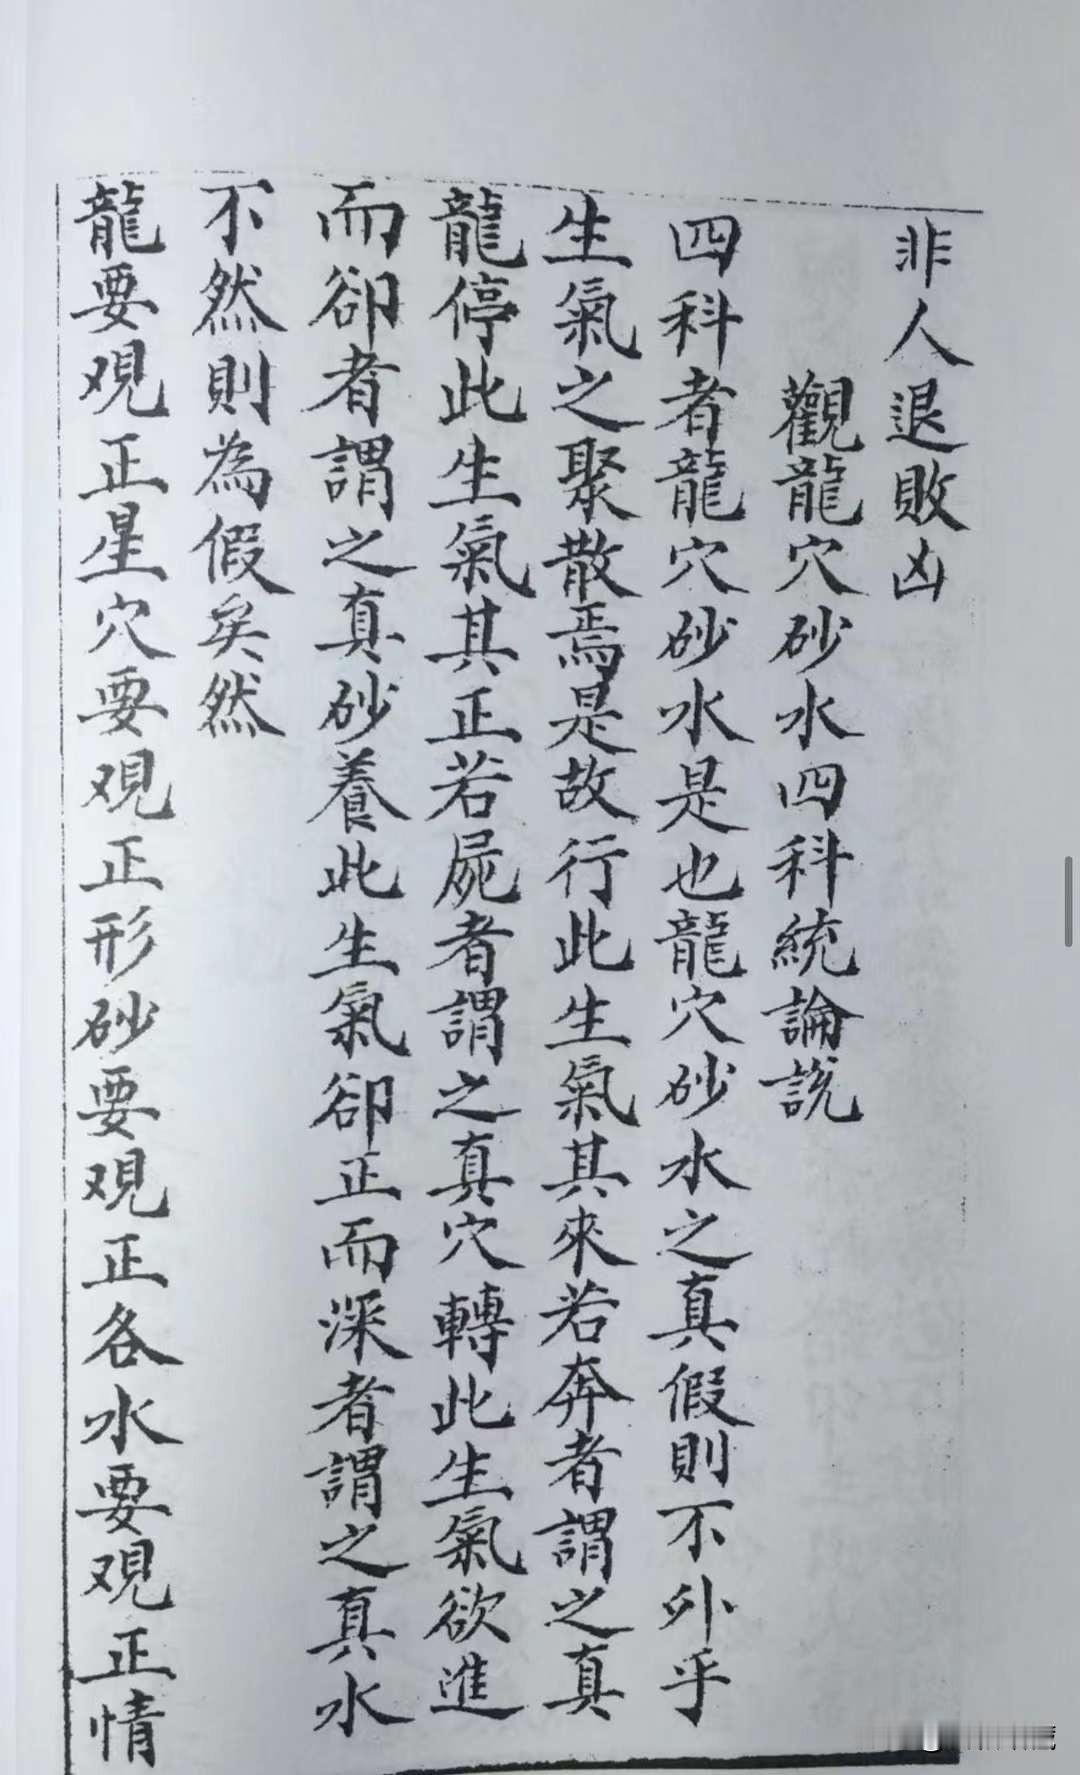 非人退敗凶
觀龍穴砂水四科統論説
四科者龍穴砂水是也龍穴砂水之真假則不外乎
生氣之聚散焉是故行此生氣其來若奔者謂之真
龍停此生氣其正若屍者謂之真穴轉此生氣欲進
而卻者謂之真砂養此生氣卻正而深者謂之真水
不然則為假矣然
龍要覌正星穴要覌正形砂要覌正各水要覌正情